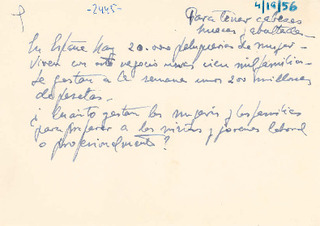 -2445-
4/19/56
Para tener cabezas
huecas y exaltadas-
En España hay 20.000 peluquerías de mujer-
Viven con este negocio unas cien mil familias-
Se gastan a la semana unos 200 millones
de pesetas-
¿Cuánto gastan las mujeres y las familias
para preparar a los niños y jóvenes laboral
o profesionalmente?